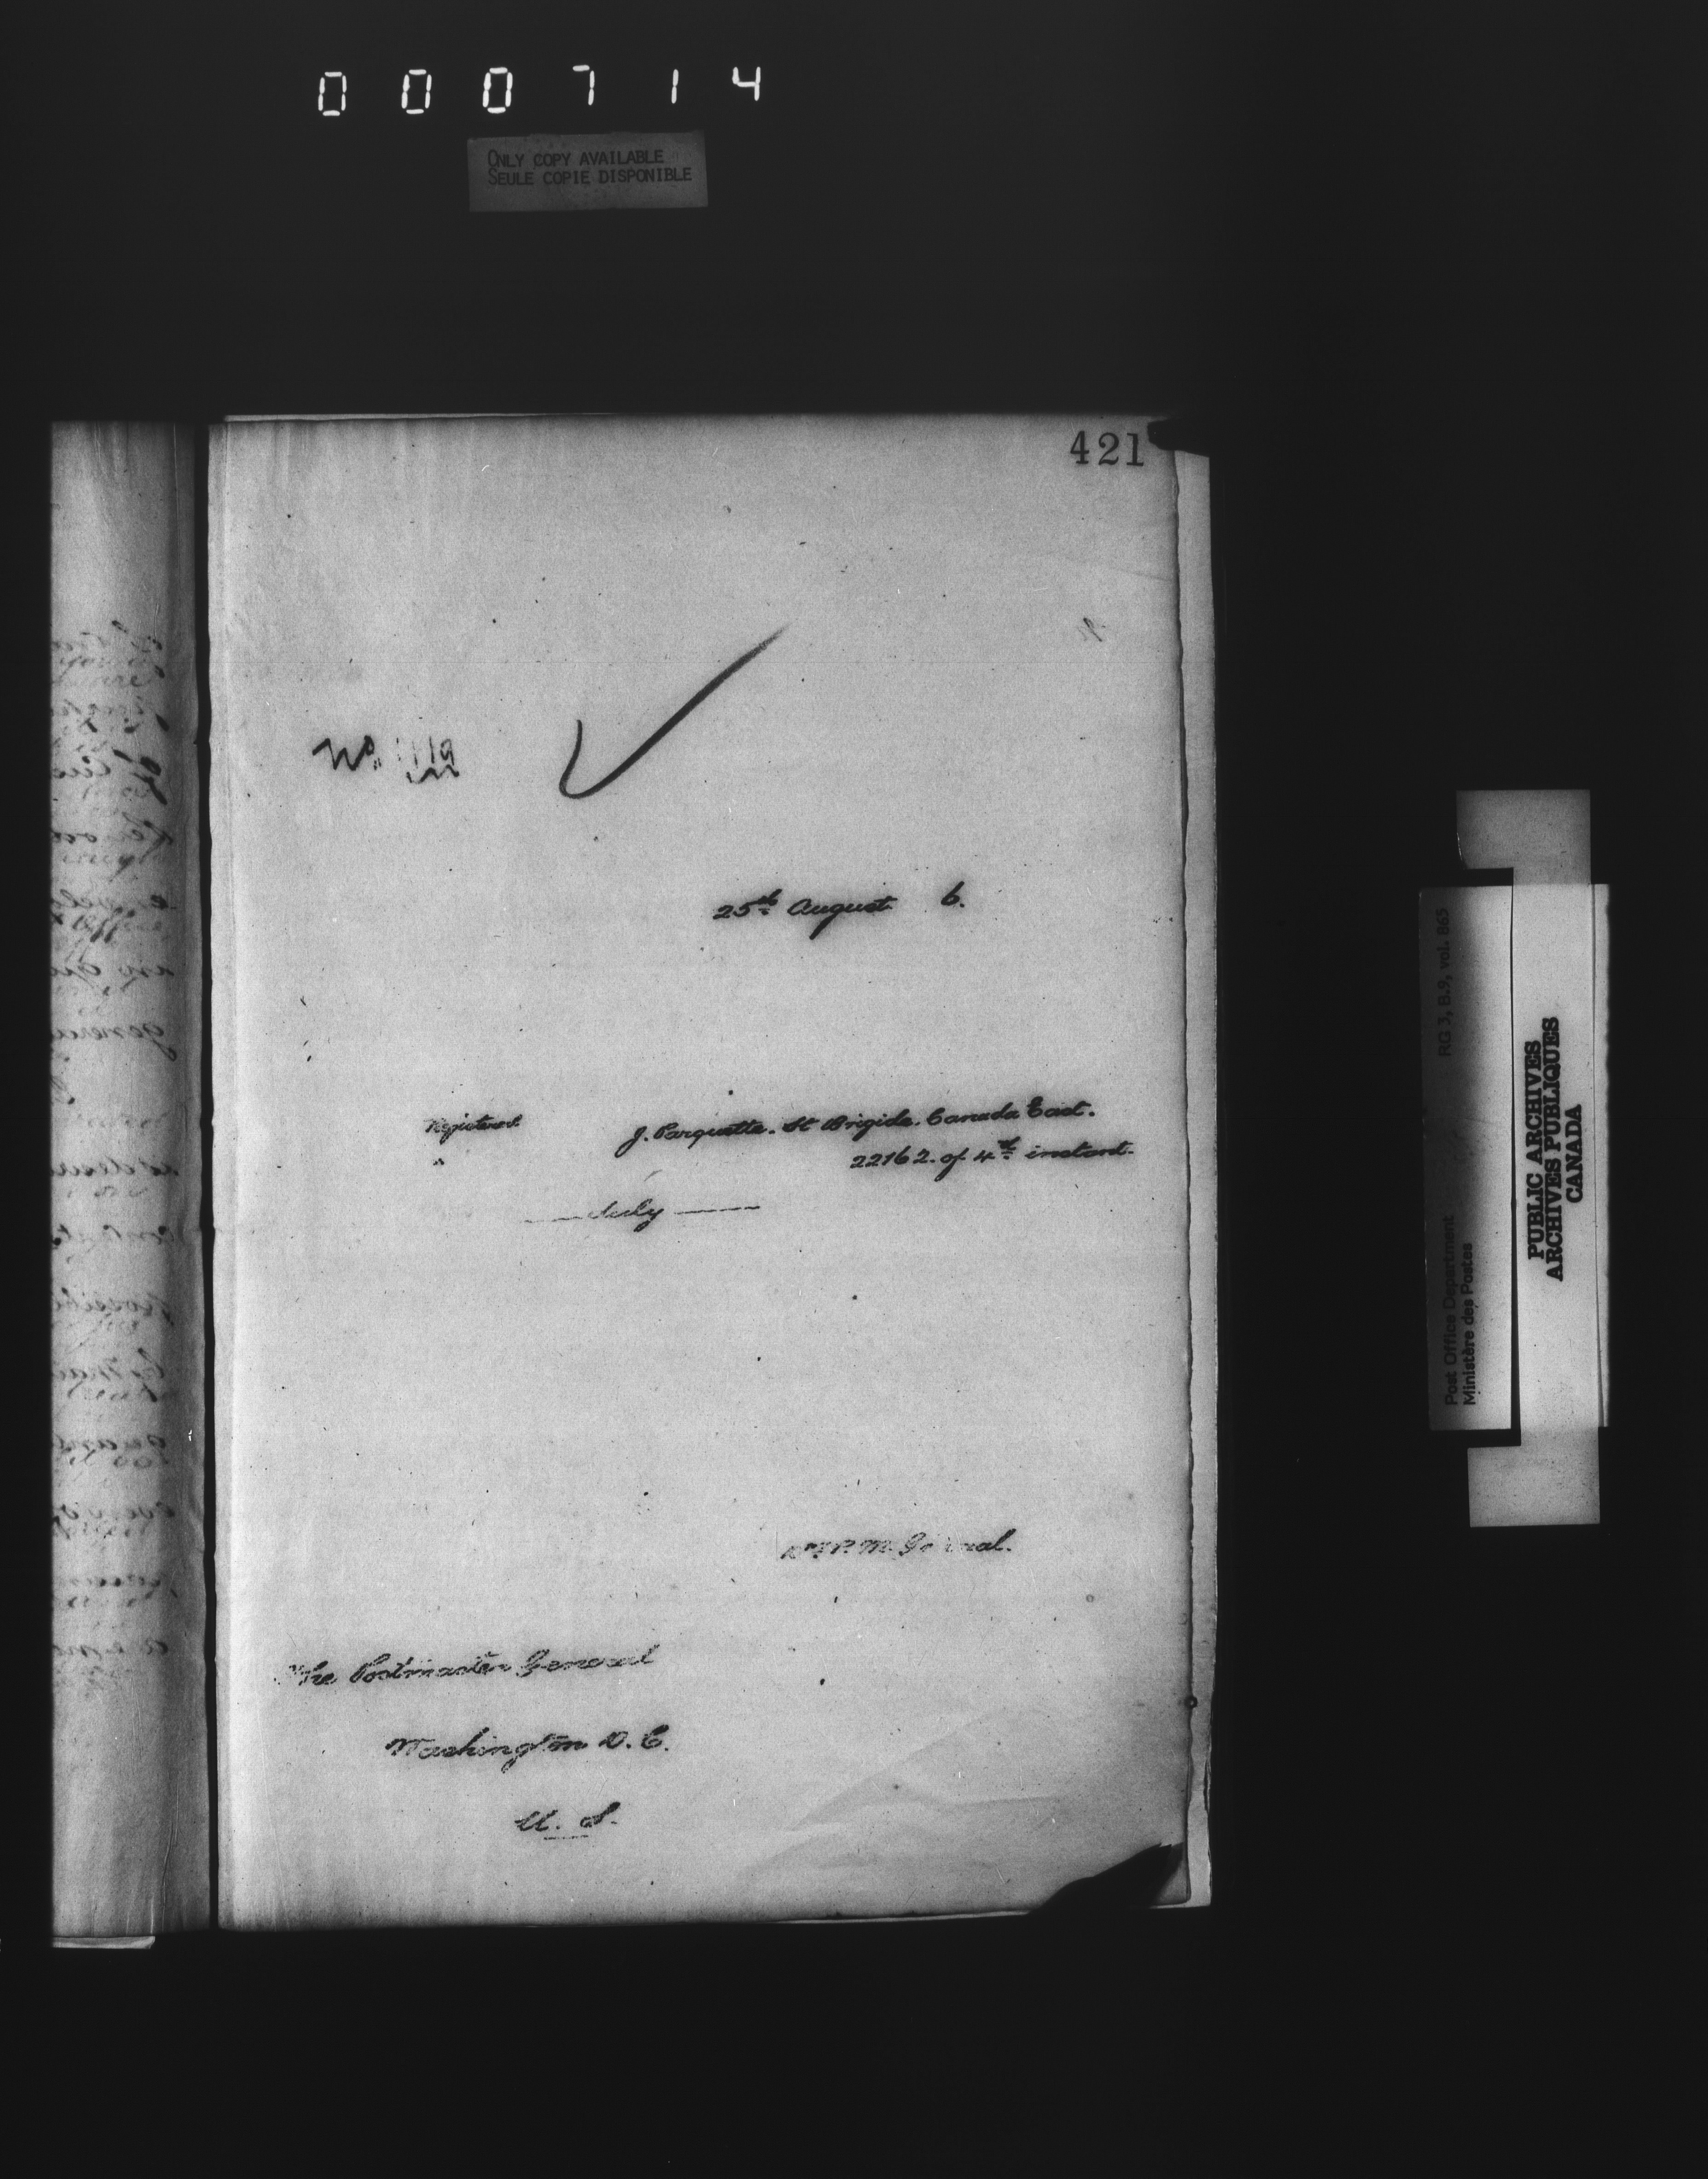 000714
ONLY COPY AVAILABLE
SEULE COPIE DISPONIBLE
421
No. 119
25th August 6.
Registered J. Parquette. St Brigide. Canada East.
" 22162. of 4th instant.
duly
P. M. General.
The Postmaster General
Washington D. C.
U. S.
RG 3, B.9, vol. 865
Post Office Department
Ministère des Postes
PUBLIC ARCHIVES
ARCHIVES PUBLIQUES
CANADA